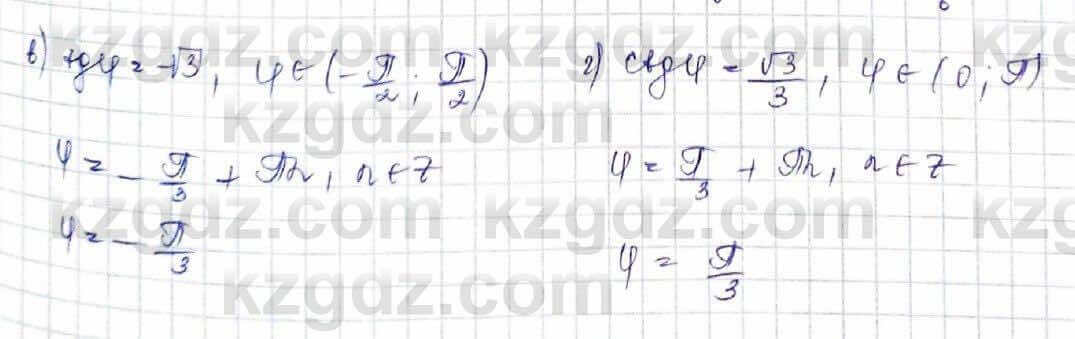 в) tgφ = -√3, φ ∈ (-π/2; π/2)
φ = -π/3 + πn, n ∈ Z
φ = -π/3
г) ctgφ = √3/3, φ ∈ (0; π)
φ = π/3 + πn, n ∈ Z
φ = π/3
kzgdz.com
kzgdz.com
kzgdz.com
kzgdz.com
kzgdz.com